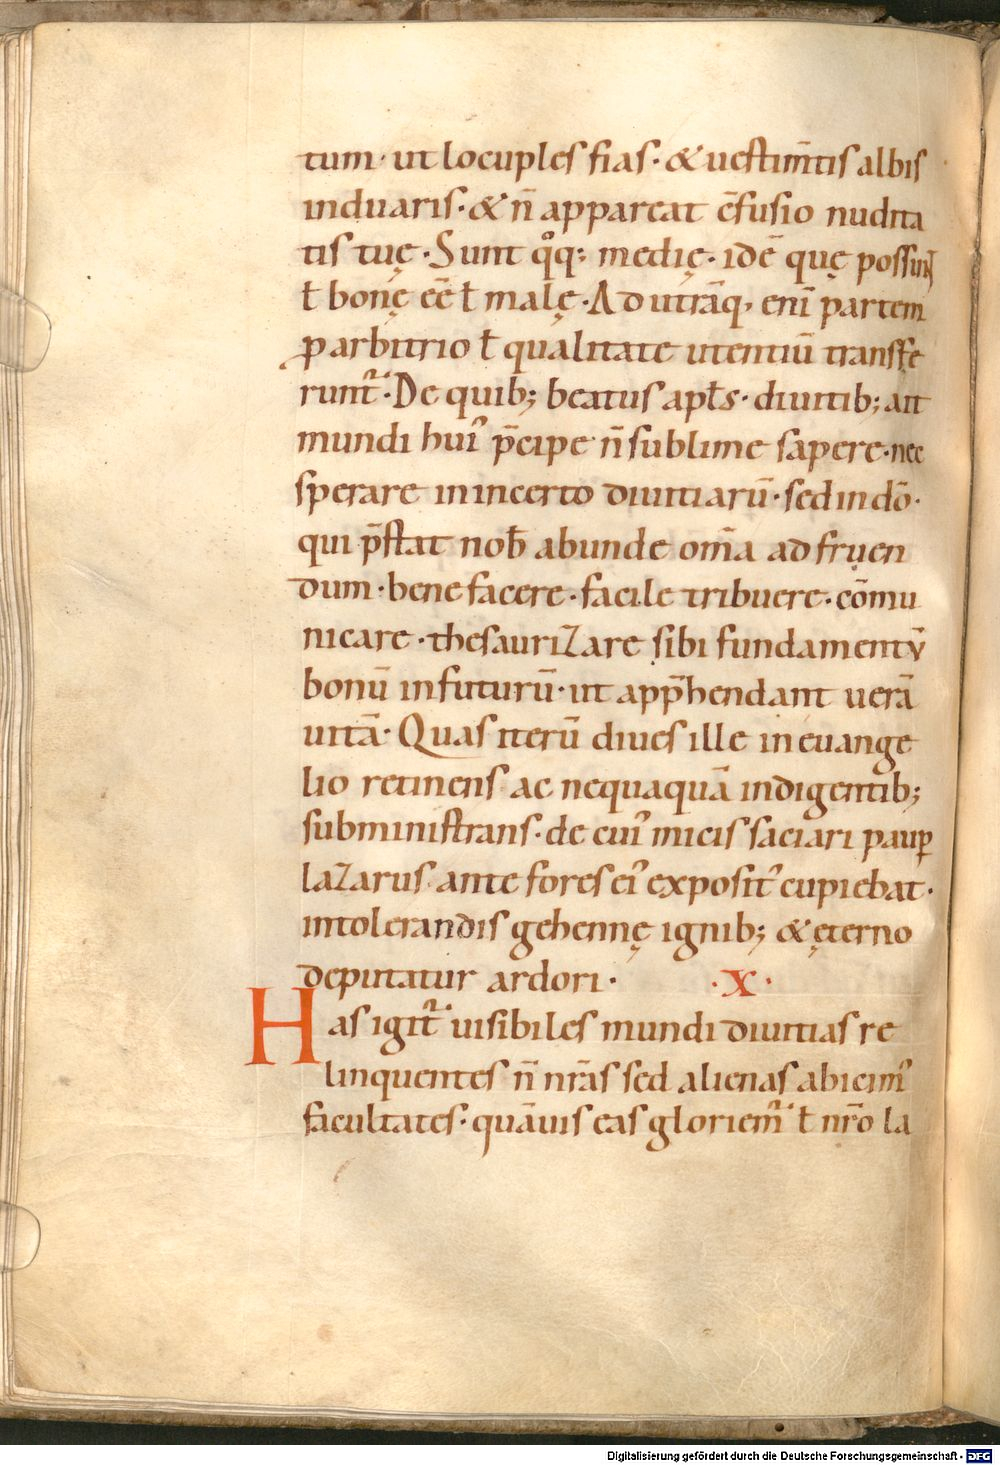 tum· ut locuples fias· & uestim̄tis albis
induaris· & n̄ appareat c̄fusio nudita
tis tuę· Sunt qͦq: medię· idē quę possunt
ł bonę eē ł malę· Ad utrāq, enī partem
ꝓ arbitrio ł qualitate utentiū transfe
runt᷑· De quib; beatus apłs· diuitib; ait
mundi huiꝰ p̄cipe n̄ sublime sapere· nec
sperare in incerto diuitiarū· sed in dō·
qui p̄stat nob̄ abunde om̄a ad fruen
dum· bene facere· facile tribuere· cōmu
nicare· thesaurizare sibi fundamentū
bonū in futurū· ut app̄hendant uerā
uitā· Quas iterū diues ille in euange
lio retinens ac nequaquā indigentib;
subministrans· de cuiꝰ micis saciari pauꝑ
lazarus ante fores eiꝰ expositꝰ cupiebat·
intolerandis gehennę ignib; & ęterno
deputatur ardori· ·X·
Has igit᷑ uisibiles mundi diuitias re
linquentes n̄ nr̄as sed alienas abicimꝰ
facultates· quāuis eas gloriem᷑ ł nr̄o la
Digitalisierung gefördert durch die Deutsche Forschungsgemeinschaft - DFG